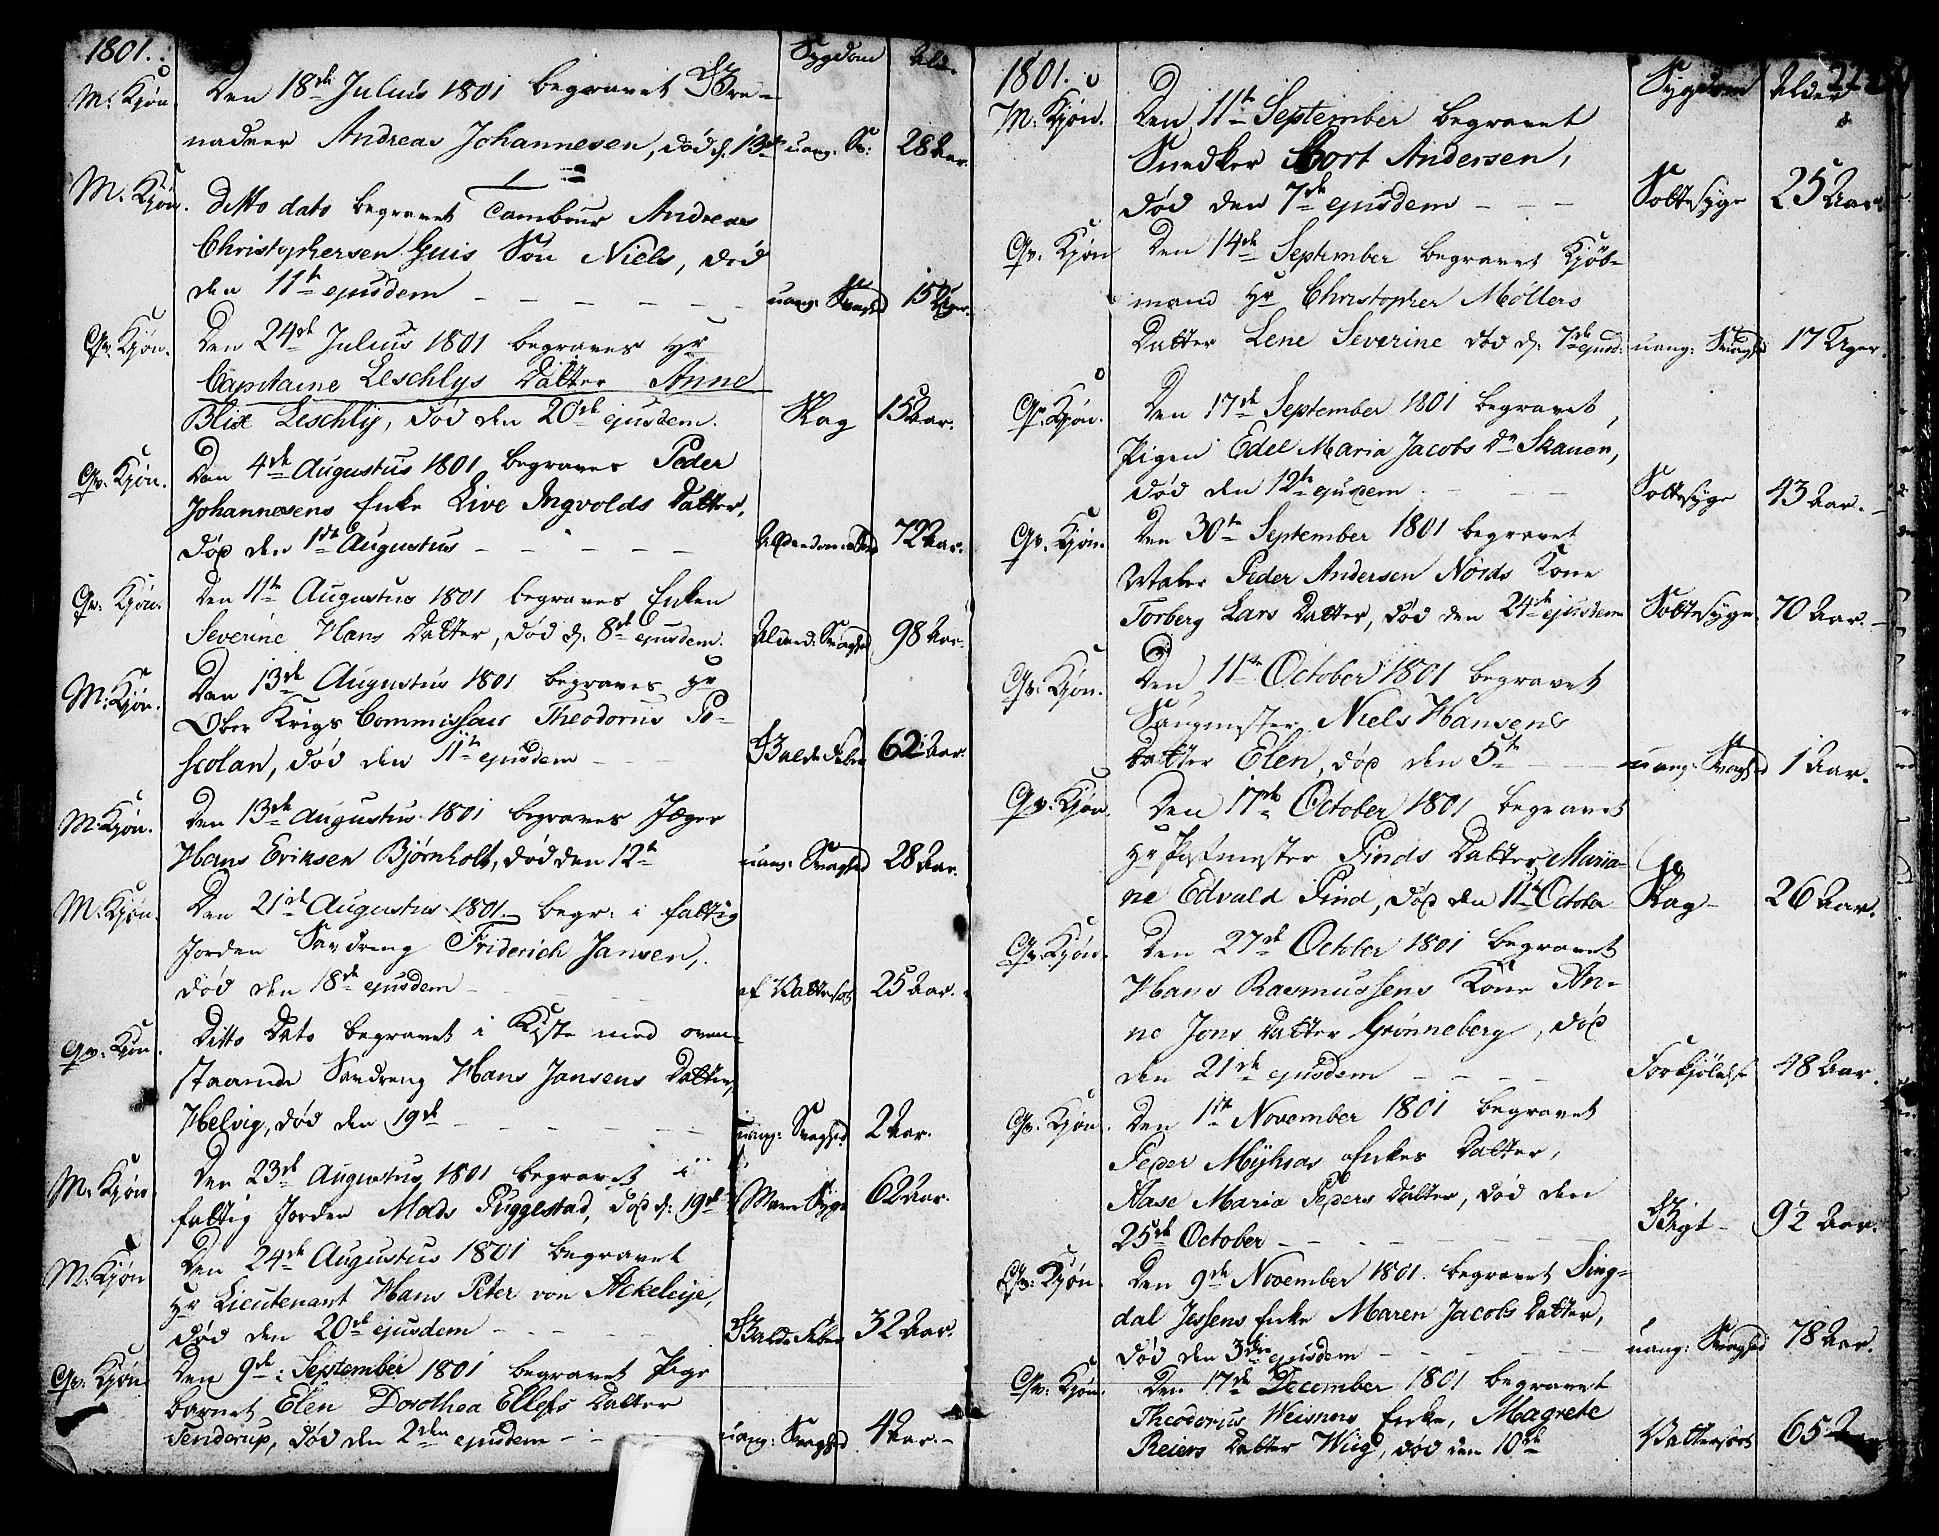 1801.
Sygdom Ald.
M: Kjøn. Den 18de Julius 1801 begravet Gre-
nadeer Andreas Johannesen, død d. 13de uang. Sv: 28 Aar.
M. Kjøn. ditto dato begravet Tambour Andreas
Christophersen Guis Søn Niels, død
den 11te ejusdem - - - - - uang: Svaghed 15 Uger.
Qv: Kjøn. Den 24de Julius 1801 begraves Hr
Capitaine Leschlys Datter Anne
Blix Leschly, død den 20de ejusdem. Slag 15 Aar.
Qv. Kjøn. Den 4de Augustus 1801 begraves Peder
Johannesens Enke Live Ingvolds Datter,
død den 1ste Augustus - - - - - 72 Aar.
Qv: Kjøn. Den 11te Augustus 1801 begraves Enken
Severine Hans Datter, død d. 8de ejusdem. Alderd: Svaghed 98 Aar.
M: Kjøn. Den 13de Augustus 1801 begraves Hr
Ober Krigs Commissair Theodorus Po-
scolan, død den 11te ejusdem - - Galde Feber 62 Aar.
M. Kjøn. Den 13de Augustus 1801 begraves Jæger
Hans Eriksen Bjørnholt, død den 12te uang: Svaghed 28 Aar.
M. Kjøn. Den 21de Augustus 1801 begr: i fattig
Jorden Savdreng Friderich Jansen,
død den 18de ejusdem - af Vattersot 25 Aar.
Qv: Kjøn. Ditto Dato begravet i Kiste med oven-
staaende Savdreng Hans Jansens Datter,
Helvig, død den 19de - - - - - uang: Svaghed 2 Aar.
M. Kjøn. Den 23de Augustus 1801 begravet i
fattig Jorden Mads Puggestad, død d: 19de 62 Aar.
M. Kjøn Den 24de Augustus 1801 begravet
Hr Lieutenant Hans Peter von Akeleije,
død den 20de ejusdem - - - - Galde Feber 32 Aar.
Qv: Kjøn Den 9de: September 1801 begravet Pige
barnet Elen Dorothea Ellefs Datter
Tenderup, død den 2den ejusdem - - uang: Svaghed 4 Aar. -
1801.
Sygdom Alder 22
M: Kjøn. Den 11te September begravet
Snedker Cort Andersen,
død den 7de ejusdem - - - Sottesyge 25 Aar.
Qv. Kjøn Den 14de September begravet Kjøb-
mand Hr Christopher Møllers
Datter Lene Severine død d. 7de ejusd: uang: Svaghed 17 Uger.
Qv. Kjøn. Den 17de September 1801 begravet,
Pigen Edel Maria Jacobs Dr Skanen,
død den 12te ejusdem - - - Sottesyge 43 Aar. -
Qv. Kjøn. Den 30te September 1801 begravet
Peder Andersen Nords Kone
Torberg Lars Datter, død den 24de ejusdem Sottesyge 70 Aar. -
Qv: Kjøn. Den 11te October 1801 begravet
Saugmester Niels Hansens
Datter Elen, død den 5te - - uang: Svaghed 1 Aar.
Qv: Kjøn. Den 17de October 1801 begravet
Hr Postmester Pinds Datter Maria-
ne Edvald Pind, død den 11te October Slag - 26 Aar.
Qv. Kjøn. Den 27de October 1801 begravet
Hans Rasmussens Kone An-
ne Jons Datter Grønneberg, død
den 21de ejusdem - - - - Forkjølelse 48 Aar.
Qv. Kjøn. Den 1ste November 1801 begravet
Peder Enkes Datter,
Aase Maria Peders Datter, død den
25de October - - - - - Gigt - 92 Aar.
Qv: Kjøn. Den 9de November 1801. begravet Sing-
dal Jessens Enke Maren Jacobs Datter,
død den 3die ejusdem - - - - - uang: Svaghed 78 Aar.
Qv: Kjøn. Den 17de December 1801 begravet
Theodorus Weisners Enke, Magrete
Reiers Datter Wiig, død den 10de Vattersot 65 Aar